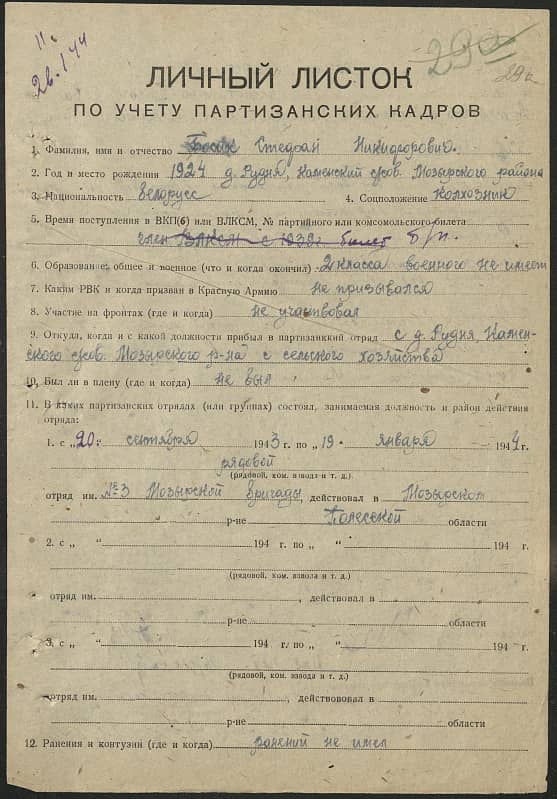 11.
26.1 44
290
29а
ЛИЧНЫЙ ЛИСТОК
ПО УЧЕТУ ПАРТИЗАНСКИХ КАДРОВ
1. Фамилия, имя и отчество Стефан Никифорович.
2. Год и место рождения 1924 д. Рудня, Каменский с/сов. Мозырского района
3. Национальность белорусс 4. Соцположение колхозник
5. Время поступления в ВКП(б) или ВЛКСМ, № партийного или комсомольского билета
член ВЛКСМ с 1939г билет б/п.
6. Образование общее и военное (что и когда окончил) 2 класса военного не имеет
7. Каким РВК и когда призван в Красную Армию не призывался
8. Участие на фронтах (где и когда) не участвовал
9. Откуда, когда и с какой должности прибыл в партизанский отряд с д. Рудня, Камен-
ского с/сов. Мозырского р-на с сельского хозяйства
10. Был ли в плену (где и когда) не был
11. В каких партизанских отрядах (или группах) состоял, занимаемая должность и район действия
отряда:
1. с „20„ сентября 1943 г. по „19„ января 1944 г.
рядовой
(рядовой, ком. взвода и т. д.)
отряд им. №3 Мозырской бригады, действовал в Мозырском
р-не Полесской области
2. с „ “ 194 г. по „ “ 194 г.
(рядовой, ком. взвода и т. д.)
отряд им. , действовал в
р-не области
3. с „ “ 194 г. по „ “ 194 г.
(рядовой, ком. взвода и т. д.)
отряд им. , действовал в
р-не области
12. Ранения и контузии (где и когда) ранений не имел